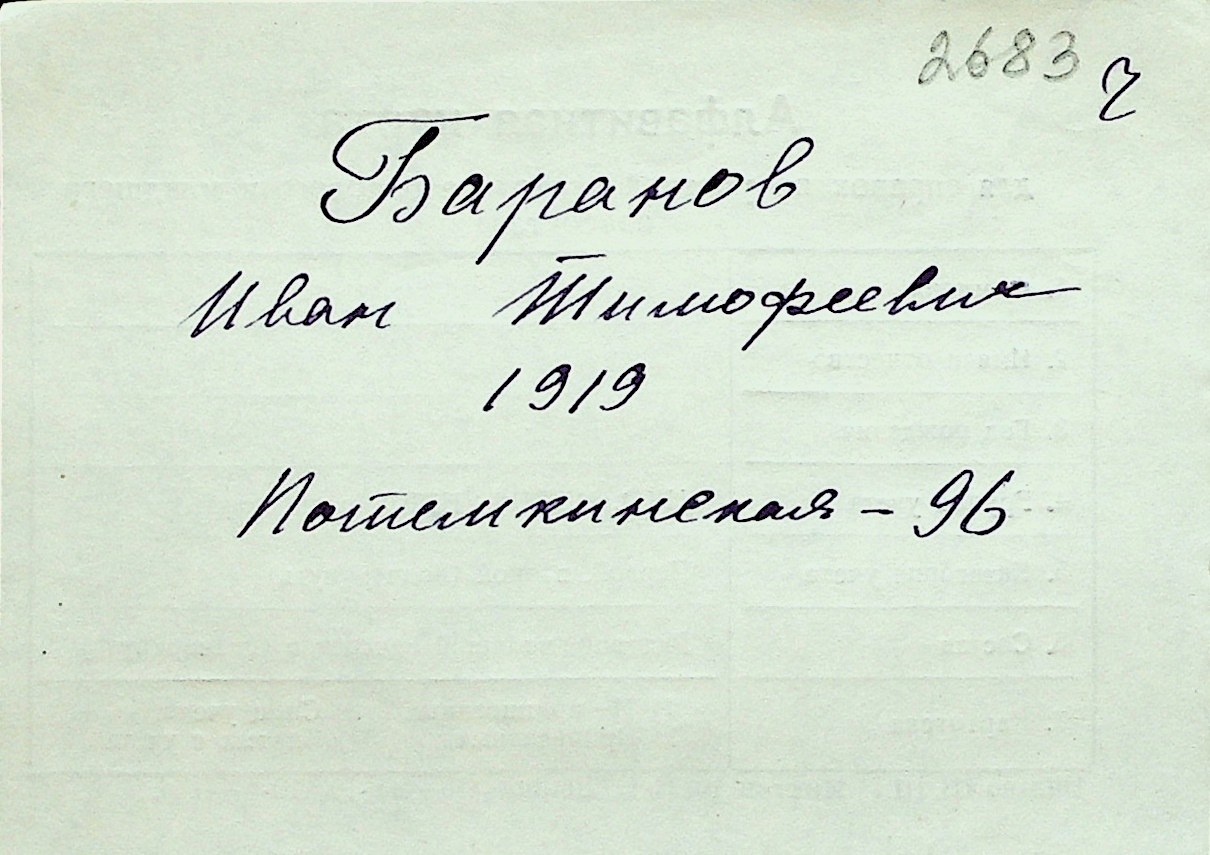 2683
ч
Баранов
Иван Тимофеевич
1919
Потемкинская - 96